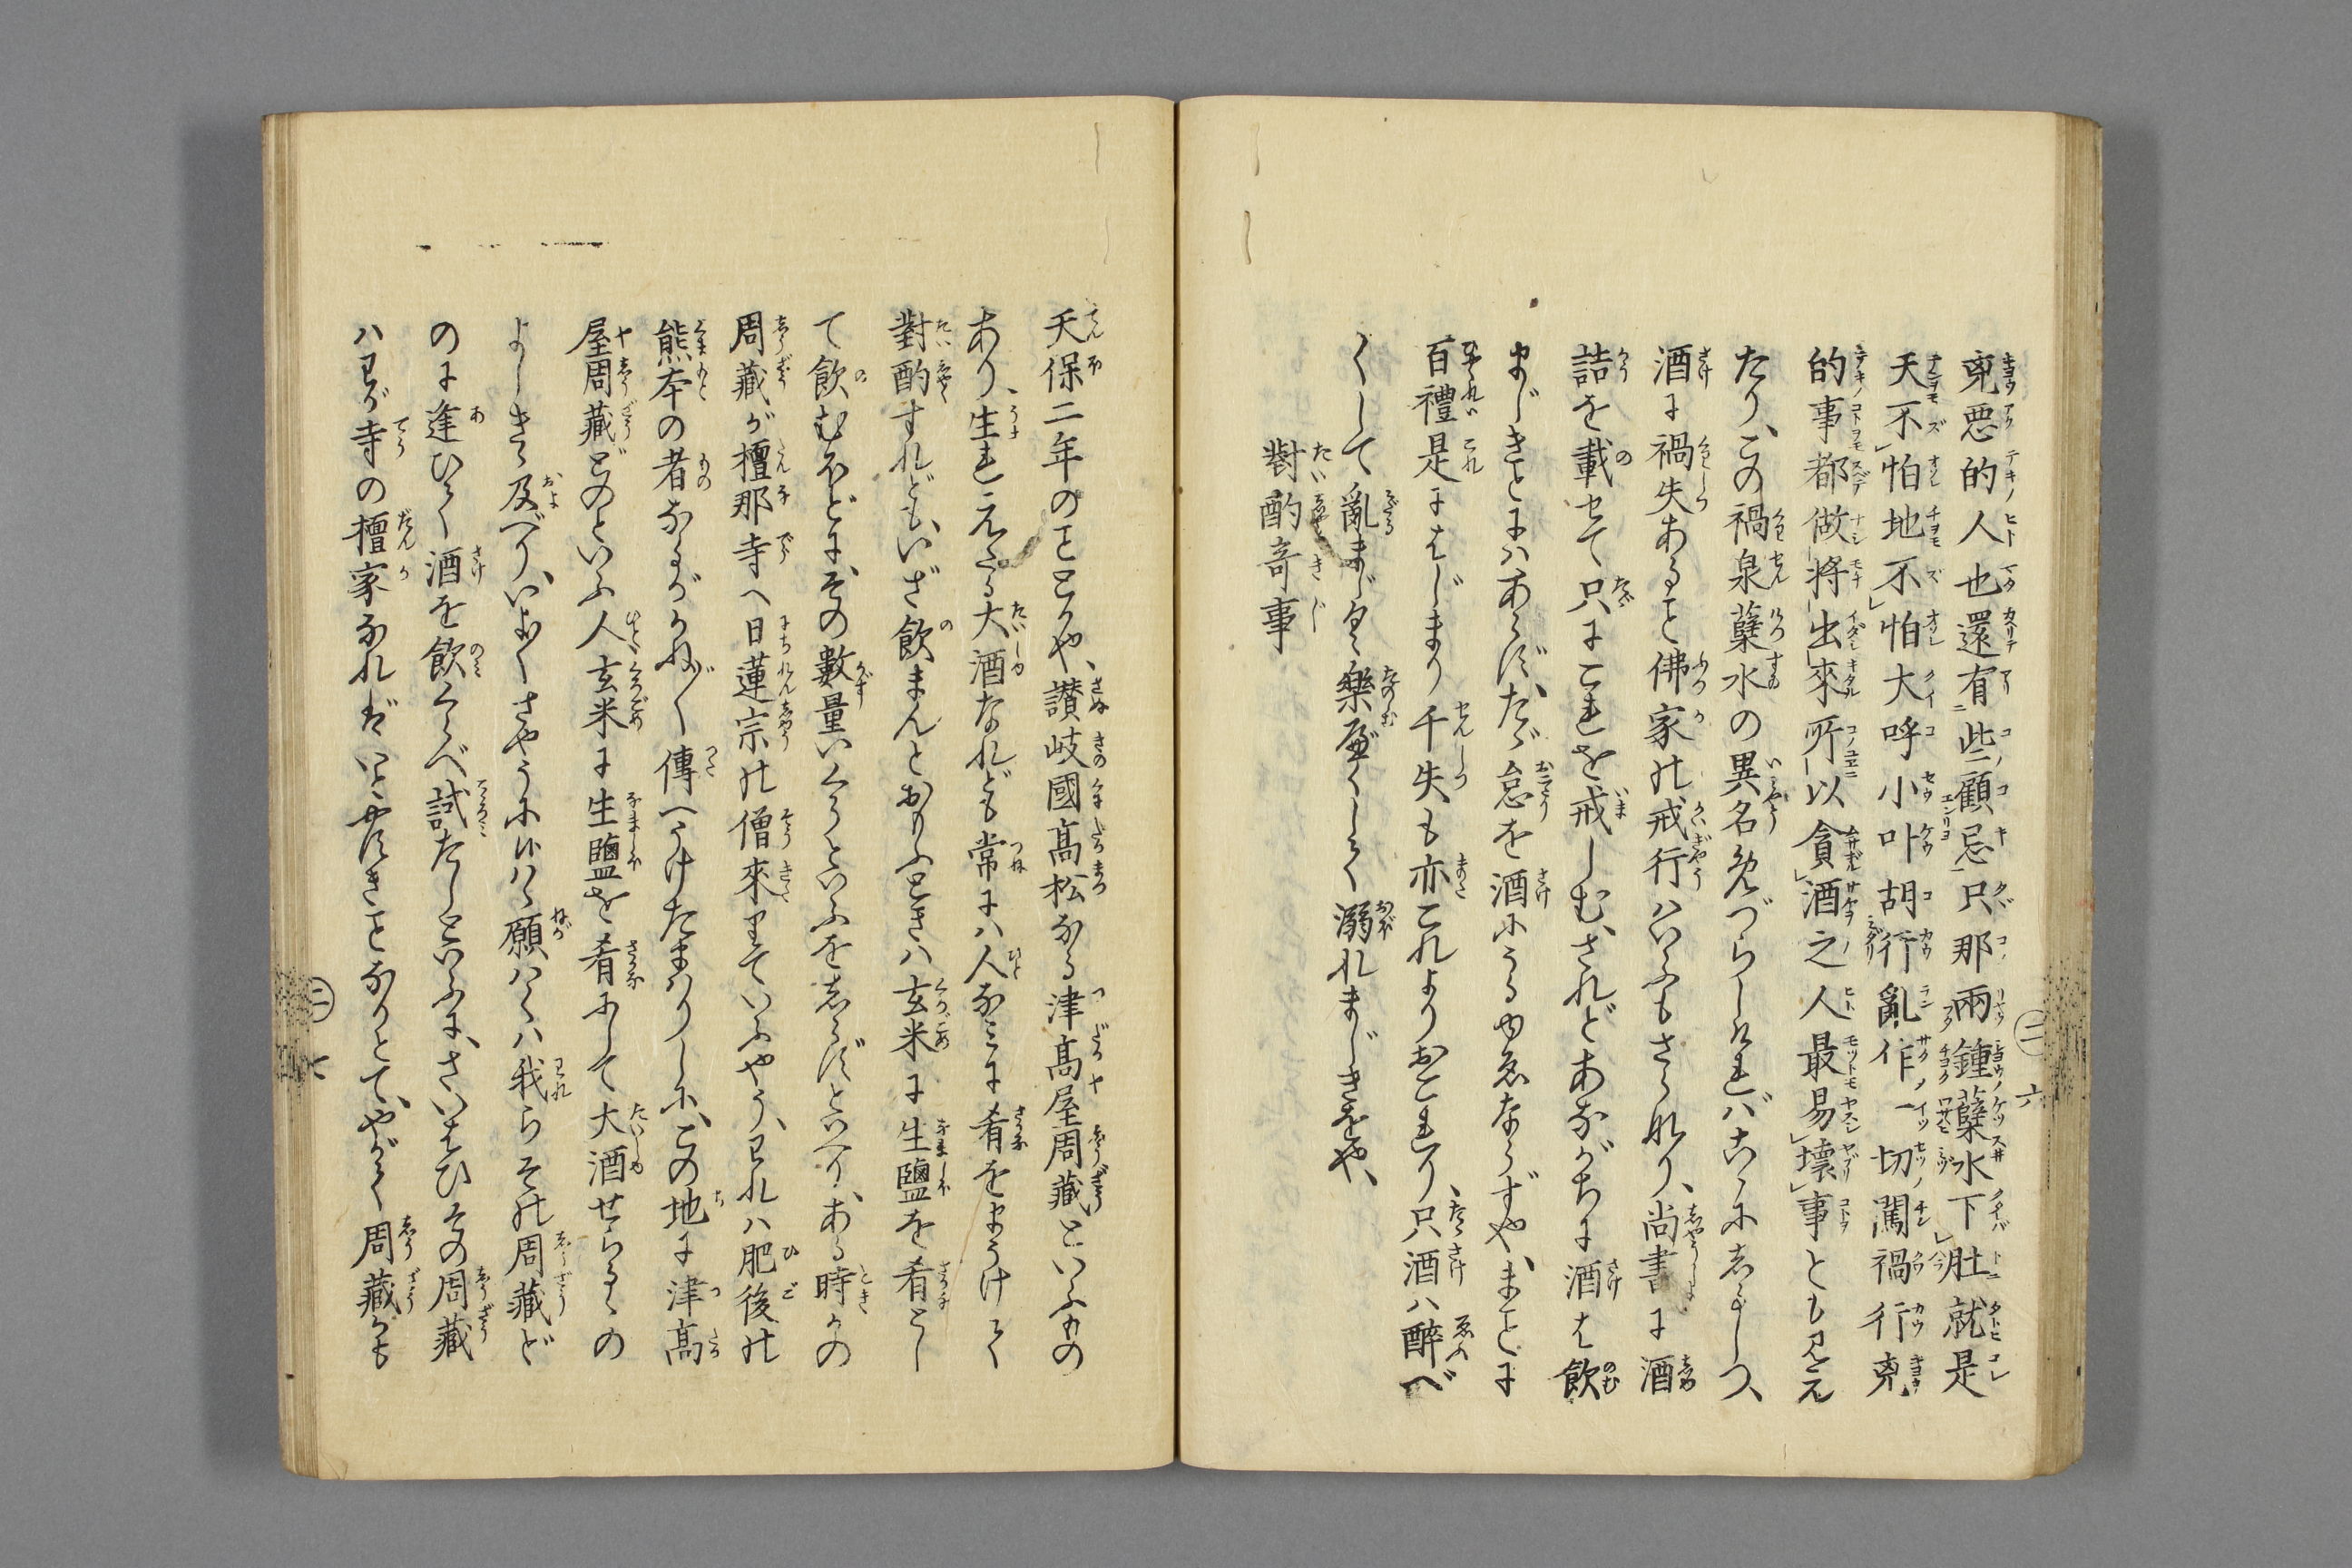 兇悪的人也還有些顧忌只那兩鍾蘖水下肚就是
天不怕地不怕大呼小叫胡行亂作一切闖禍行兇
的事都做將出來所以貪酒之人最易壊事とも見え
たり、この禍泉蘖水の異名めづらしければこゝにしるしつ、
酒に禍失あること佛家の戒行はいふもさらなり、尚書に酒
詰を載せて只にこれを戒しむ、されどあながちに酒を飲
まじきことにはあらず、たゞ怠を酒にうるゆゑならずや、まことに
百禮是にはじまり千失も亦これよりおこれり、只酒ハ醉べ
くして亂まじく樂むべくして溺れまじきをや、
對酌奇事
天保二年のことかや、讃岐國髙松なる津髙屋周藏といふもの
あり、生れえたる大酒なれども常にハ人なみに肴をまうけて
對酌すれども、いざ飲まんとおもふときハ玄米に生鹽を肴とし
て飲むほどに、その數量いくらといふをしらずといへり、ある時かの
周藏が檀那寺へ日蓮宗の僧來りていふやう、われハ肥後の
熊本の者なるがかね〴〵傳へうけたまはりしに、この地に津髙
屋周藏どのといふ人玄米に生鹽を肴にして大酒せらるゝの
よしきゝ及べり、いよ〳〵さやうに候はゞ願はくハ我らその周藏ど
のに逢ひて酒を飲くらべ試たしといふに、さいはひその周藏
ハわが寺の檀家なれバいとやすきことなりとて、やがて周藏かも
㊁ 六
㊁ 七